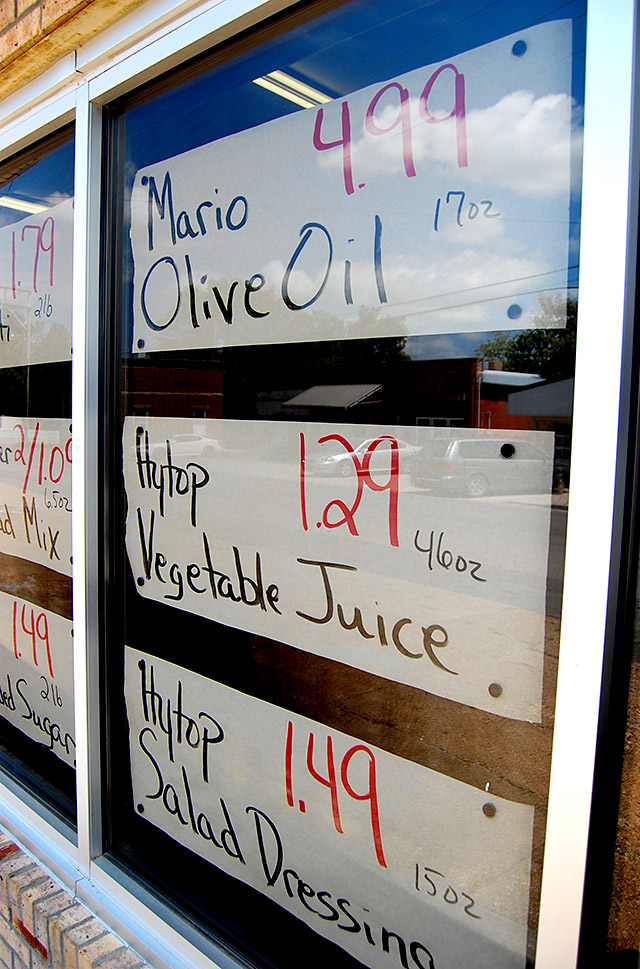 4.99
Mario
17oz
Olive Oil
Hytop
1.29
46oz
Vegetable Juice
Hytop
1.49
15oz
Salad Dressing
1.79
2lb
2/1.09
6.5oz
Mix
1.49
2lb
Sugar